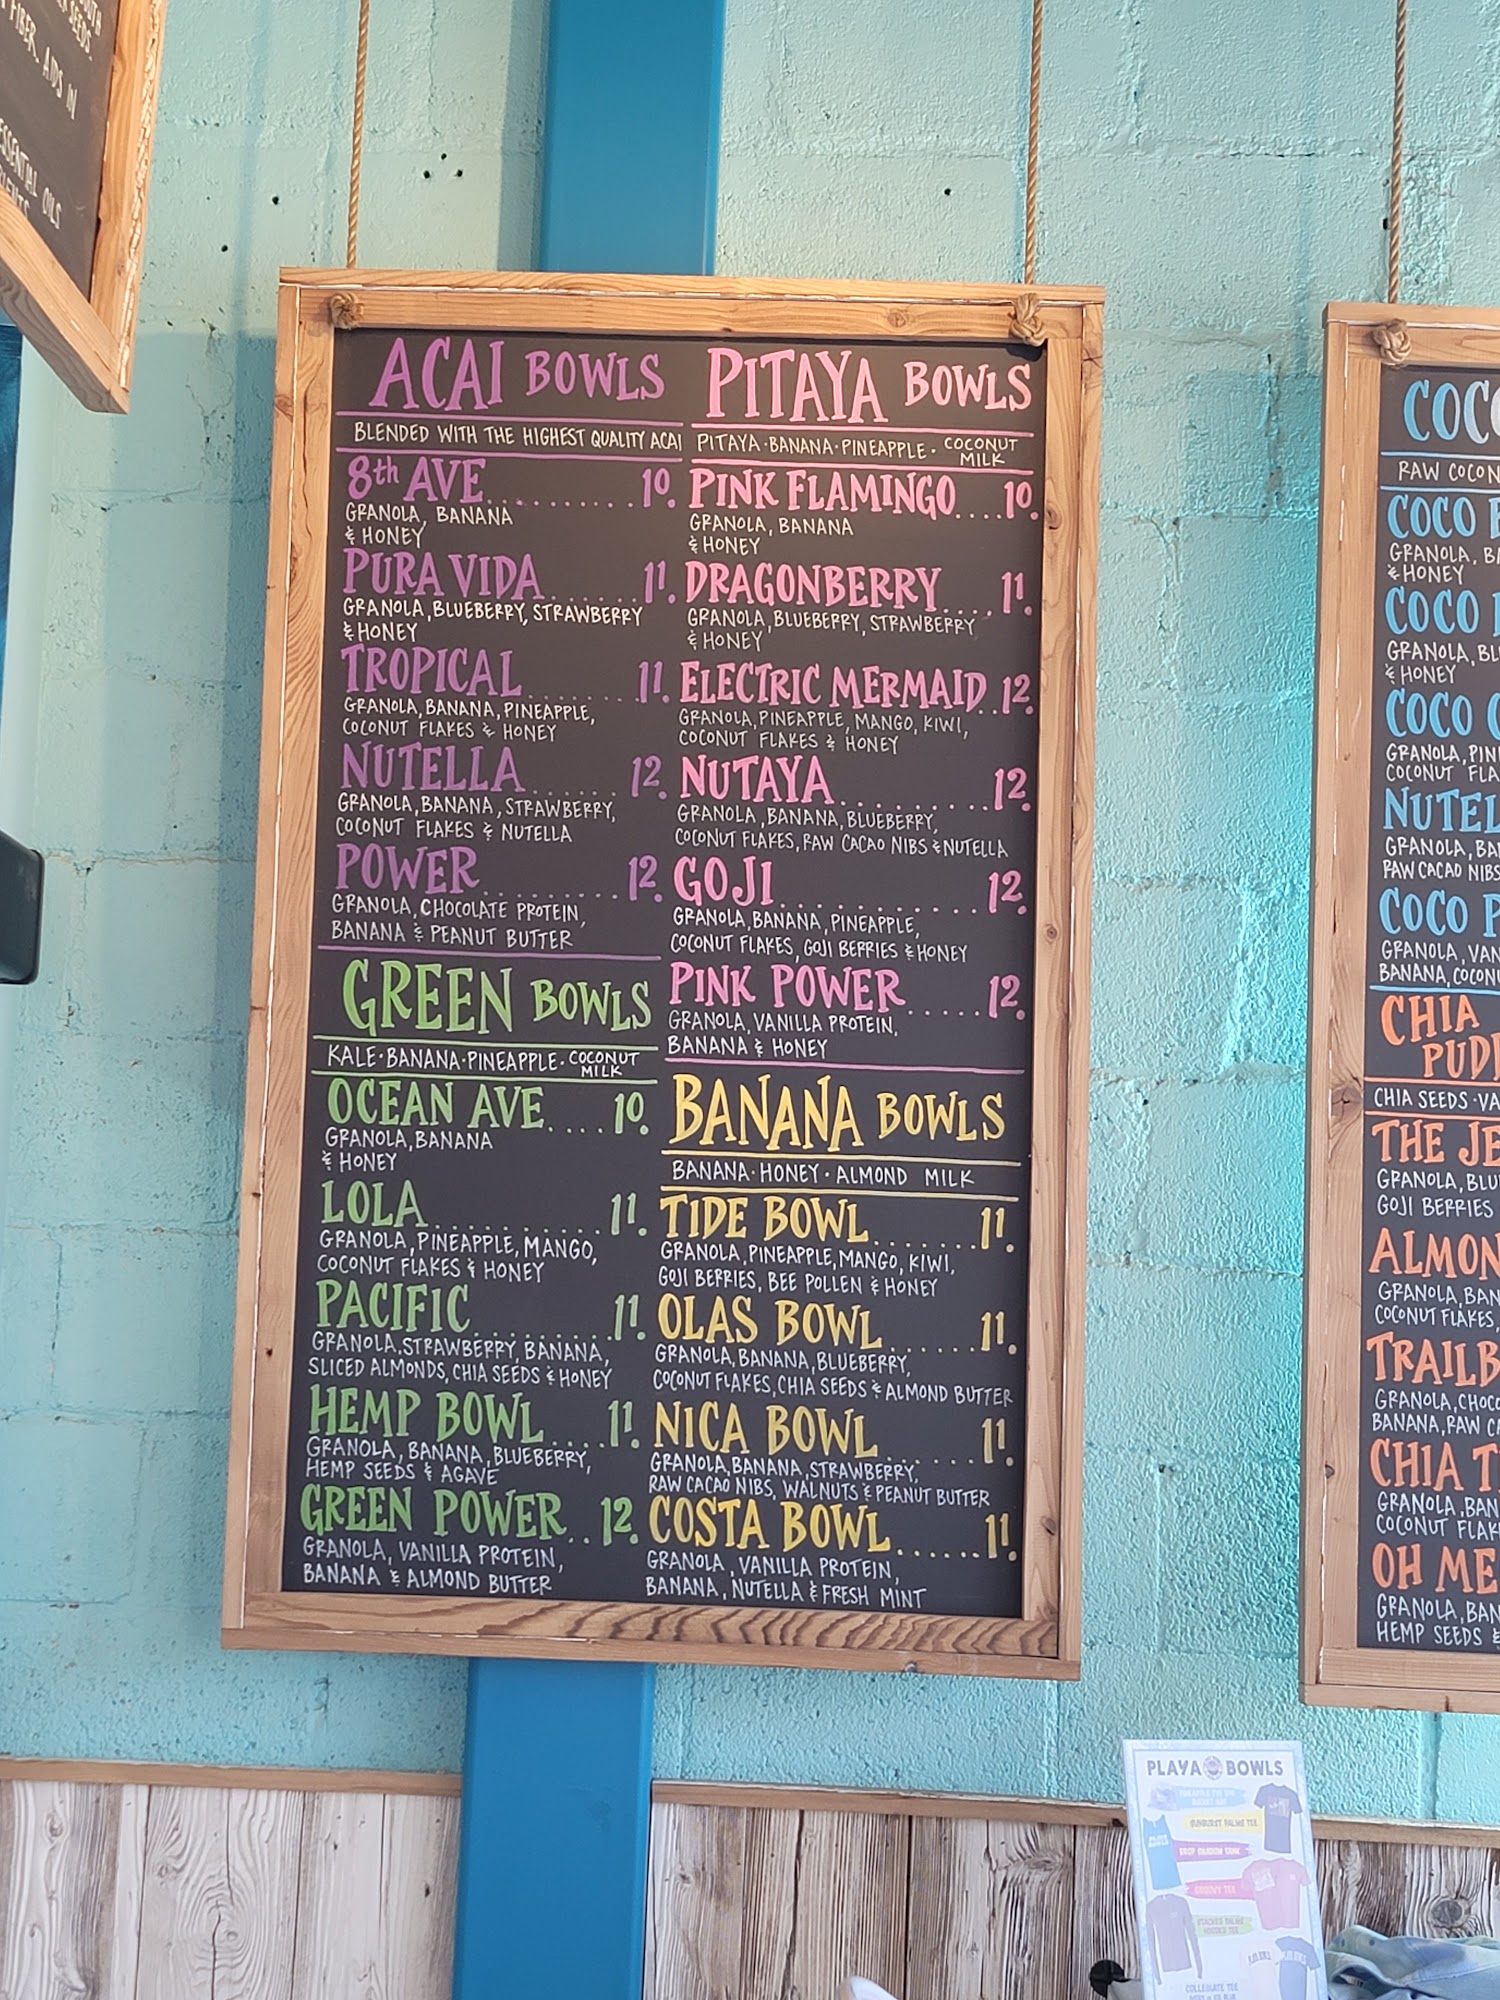 SEEDS.
FIBER, AIDS IN
ESSENTIAL OILS
ACAI BOWLS
BLENDED WITH THE HIGHEST QUALITY ACAI
8th AVE.......... 10.
GRANOLA, BANANA
& HONEY
PURA VIDA....... 11.
GRANOLA, BLUEBERRY, STRAWBERRY
& HONEY
TROPICAL........ 11.
GRANOLA, BANANA, PINEAPPLE,
COCONUT FLAKES & HONEY
NUTELLA....... 12.
GRANOLA, BANANA, STRAWBERRY,
COCONUT FLAKES & NUTELLA
POWER.......... 12.
GRANOLA, CHOCOLATE PROTEIN,
BANANA & PEANUT BUTTER
GREEN BOWLS
KALE·BANANA·PINEAPPLE·COCONUT MILK
OCEAN AVE.... 10.
GRANOLA, BANANA
& HONEY
LOLA........... 11.
GRANOLA, PINEAPPLE, MANGO,
COCONUT FLAKES & HONEY
PACIFIC......... 11.
GRANOLA, STRAWBERRY, BANANA,
SLICED ALMONDS, CHIA SEEDS & HONEY
HEMP BOWL.... 11.
GRANOLA, BANANA, BLUEBERRY,
HEMP SEEDS & AGAVE
GREEN POWER.. 12.
GRANOLA, VANILLA PROTEIN,
BANANA & ALMOND BUTTER
PITAYA BOWLS
PITAYA·BANANA·PINEAPPLE·COCONUT MILK
PINK FLAMINGO.... 10.
GRANOLA, BANANA
& HONEY
DRAGONBERRY.... 11.
GRANOLA, BLUEBERRY, STRAWBERRY
& HONEY
ELECTRIC MERMAID.. 12.
GRANOLA, PINEAPPLE, MANGO, KIWI,
COCONUT FLAKES & HONEY
NUTAYA.......... 12.
GRANOLA, BANANA, BLUEBERRY,
COCONUT FLAKES, RAW CACAO NIBS & NUTELLA
GOJI............ 12.
GRANOLA, BANANA, PINEAPPLE,
COCONUT FLAKES, GOJI BERRIES & HONEY
PINK POWER...... 12.
GRANOLA, VANILLA PROTEIN,
BANANA & HONEY
BANANA BOWLS
BANANA·HONEY·ALMOND MILK
TIDE BOWL....... 11.
GRANOLA, PINEAPPLE, MANGO, KIWI,
GOJI BERRIES, BEE POLLEN & HONEY
OLAS BOWL....... 11.
GRANOLA, BANANA, BLUEBERRY,
COCONUT FLAKES, CHIA SEEDS & ALMOND BUTTER
NICA BOWL....... 11.
GRANOLA, BANANA, STRAWBERRY,
RAW CACAO NIBS, WALNUTS & PEANUT BUTTER
COSTA BOWL...... 11.
GRANOLA, VANILLA PROTEIN,
BANANA, NUTELLA & FRESH MINT
RAW
COCO
GRANOLA,
& HONEY
COCO
GRANOLA,
& HONEY
COCO
GRANOLA,
COCONUT
GRANOLA,
RAW CACAO NIBS
COCO
GRANOLA,
BANANA,
CHIA
CHIA SEEDS
THE
GRANOLA,
GOJI BERRIES
GRANOLA,
COCONUT FLAKES,
GRANOLA,
BANANA, RAW
CHIA
GRANOLA,
COCONUT
OH
GRANOLA,
HEMP SEEDS &
PLAYA BOWLS
SUNBURST PALMS TEE
DROP SHADOW TANK
GROOVY TEE
STACKED PALMS
HOODED TEE
COLLEGIATE TEE